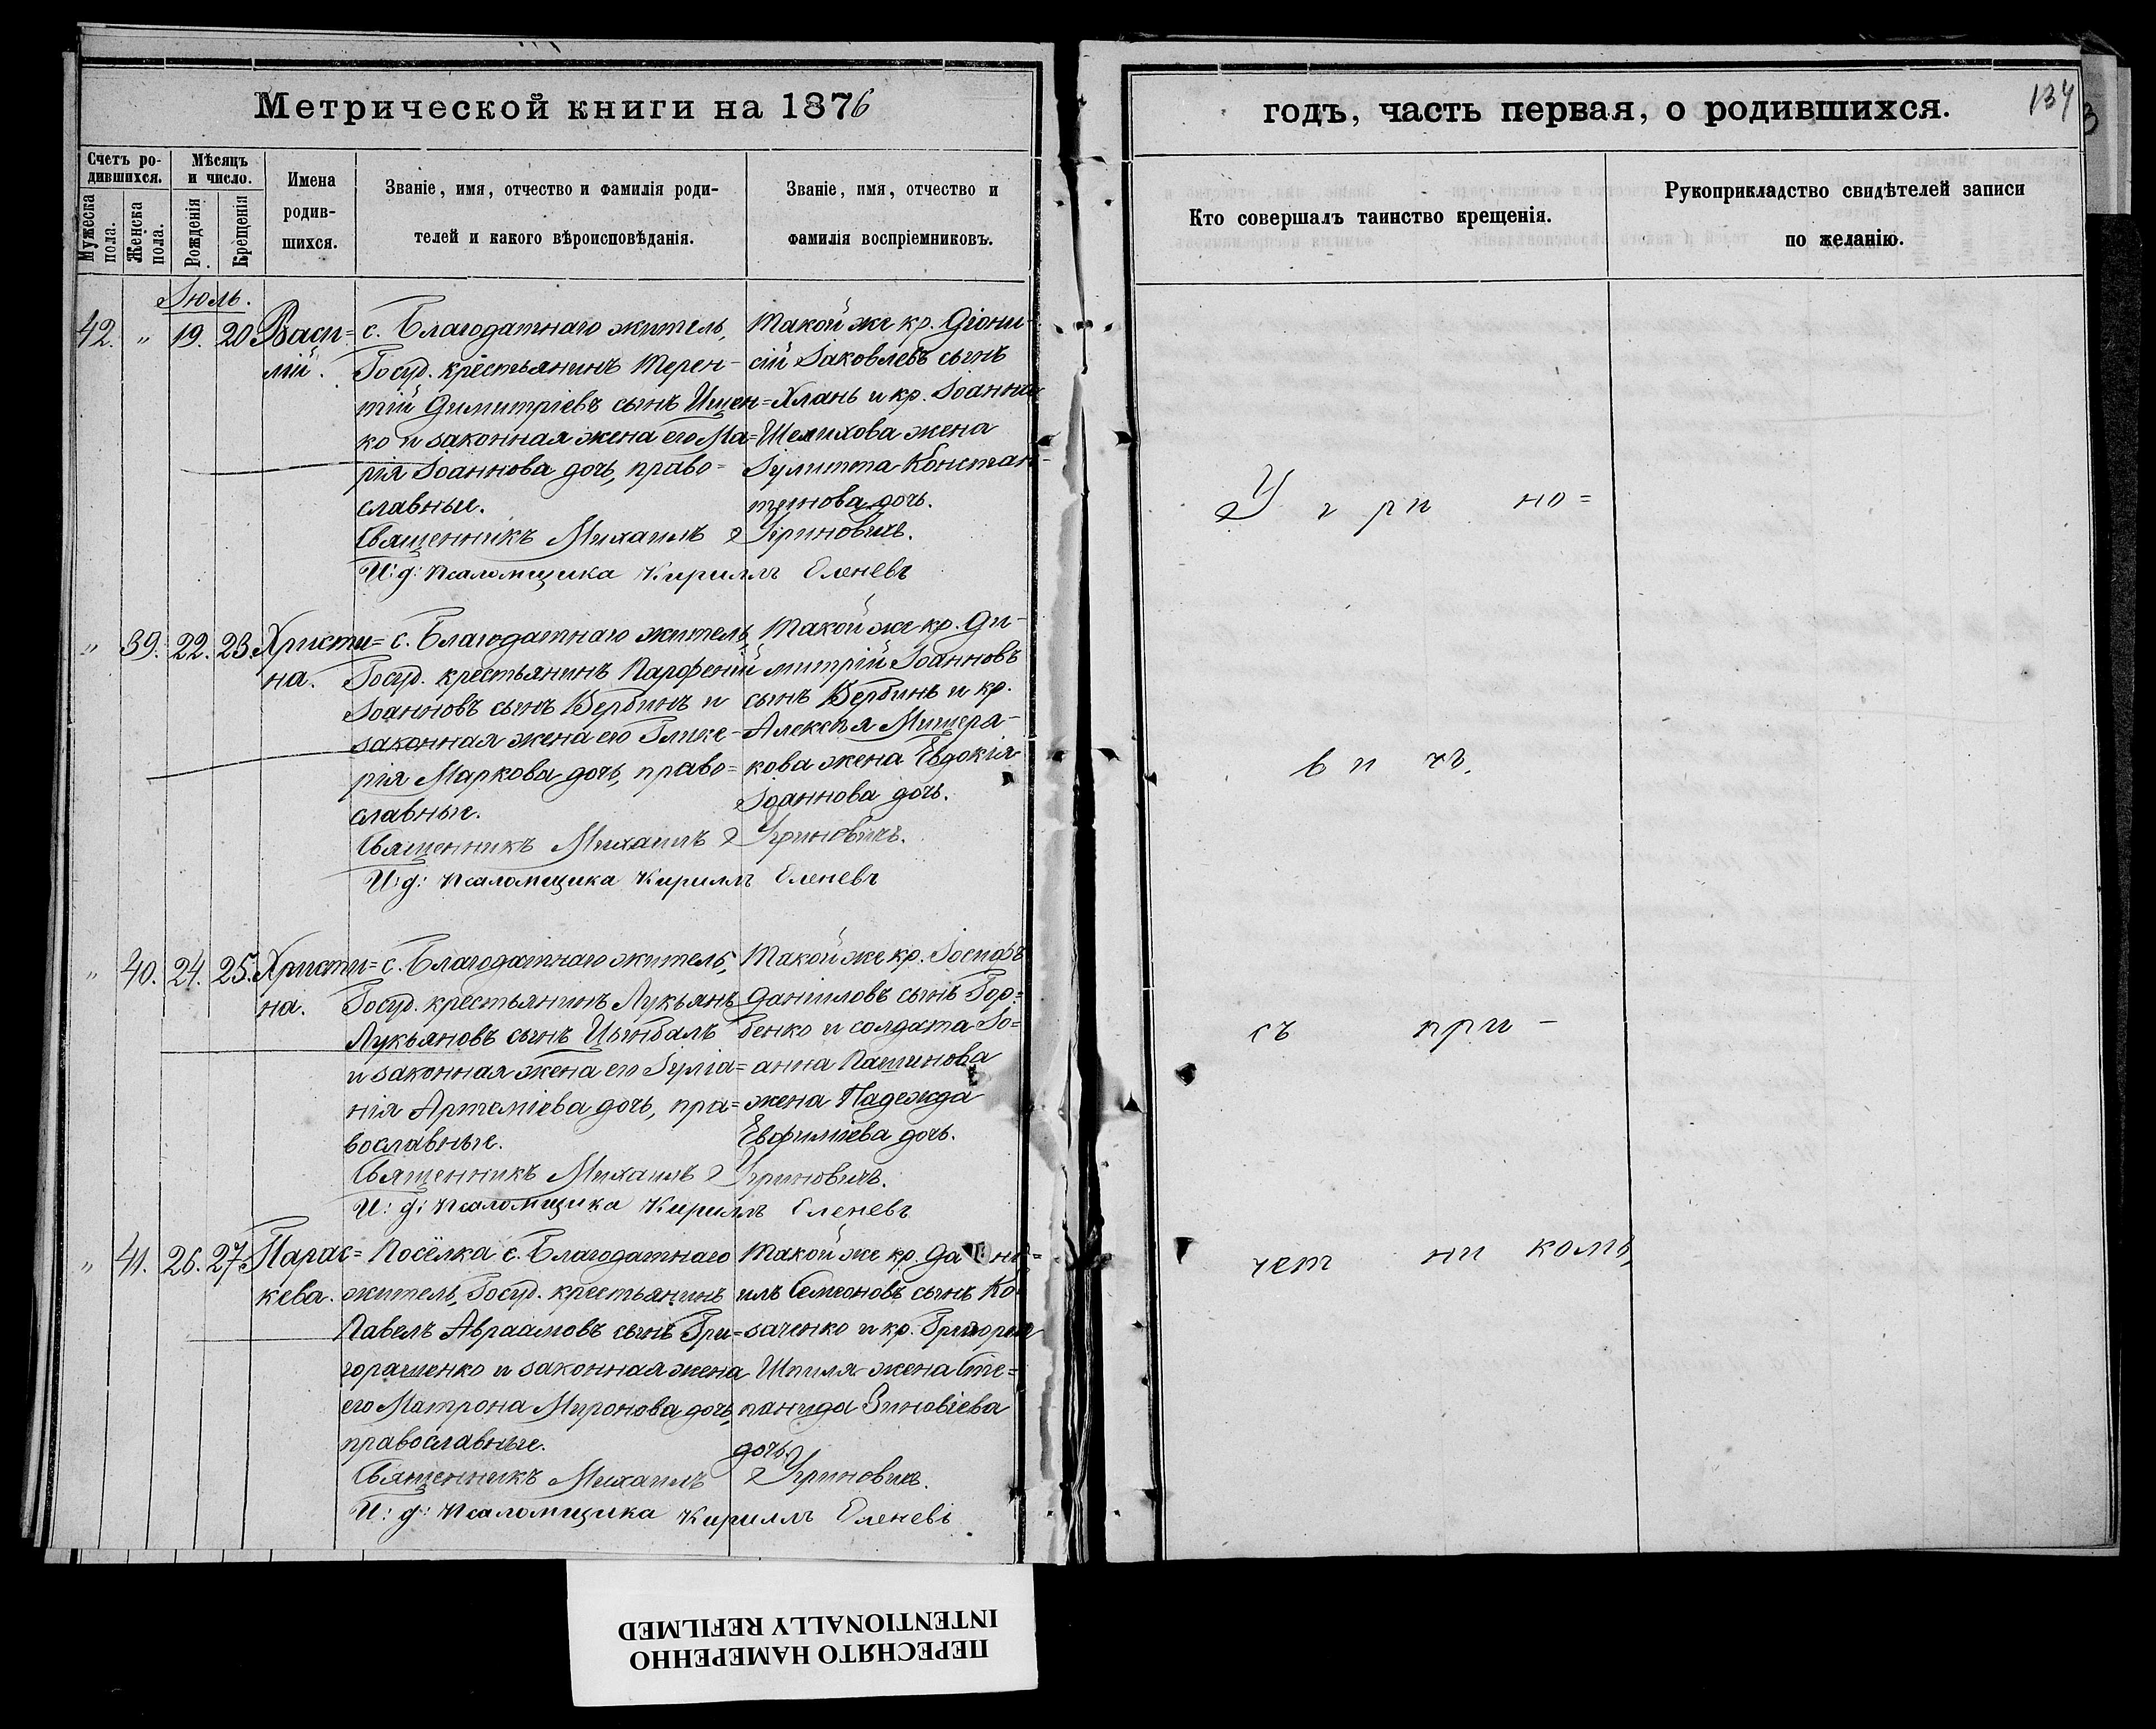 Метрической книги на 1876
годъ, часть первая, о родившихся.
134
Счетъ ро-
дившихся.
Мужеска
пола.
Женска
пола.
Мѣсяцъ
и число.
Рожденія
Крещенія
Имена
родив-
шихся.
Званіе, имя, отчество и фамилія роди-
телей и какого вѣроисповѣданія.
Званіе, имя, отчество и
фамилія воспріемниковъ.
Кто совершалъ таинство крещенія.
Рукоприкладство свидѣтелей записи
по желанію.
Іюль.
42. „ 19. 20. Васи=
лій.
с. Благодатнаго житель,
Госуд. крестьянинъ Терен-
тій Димитріевъ сынъ Ищен=
ко и законная жена его Ма=
рія Іоаннова дочь, право=
славные.
Такой же кр. Діони-
сій Іаковлевъ сынъ
Хлань и кр. Іоанна
Шелихова жена
Іулитта Констан-
тинова дочь.
Священникъ Михаилъ Угриновичъ.
И: д: псаломщика Кириллъ Еленевъ
„ 39. 22. 23. Христи=
на.
с. Благодатнаго житель,
Госуд. крестьянинъ Парфеній
Іоанновъ сынъ Вербинъ и
законная жена его Глике-
рія Маркова дочь, право=
славные.
Такой же кр. Ди-
митрій Іоанновъ
сынъ Вербинъ и кр.
Алексѣя Мищеря-
кова жена Евдокія
Іоаннова дочь.
Священникъ Михаилъ Угриновичъ.
И: д: псаломщика Кириллъ Еленевъ
„ 40. 24. 25. Христи=
на.
с. Благодатнаго житель,
Госуд. крестьянинъ Лукьянъ
Лукьяновъ сынъ Цымбалъ
и законная жена его Іуліа=
нія Артеміева дочь, пра=
вославные.
Такой же кр. Іосифъ
Даніиловъ сынъ Гор=
бенко и солдата Іо=
анна Пашинова
жена Надежда
Евфиміева дочь.
Священникъ Михаилъ Угриновичъ.
И: д: псаломщика Кириллъ Еленевъ
„ 41. 26. 27. Парас=
кева.
Посёлка с. Благодатнаго
житель, Госуд. крестьянинъ
Павелъ Авраамовъ сынъ Гри=
горашенко и законная жена
его Матрона Миронова дочь,
православные.
Такой же кр. Да ні=
илъ Симеоновъ сынъ Ко
заченко и кр. Григорія
Шпиля жена Сте=
панида Зиновіева
дочь.
Священникъ Михаилъ Угриновичъ.
И: д: псаломщика Кириллъ Еленевъ
У г ри но=
в и чъ,
съ при-
чет ни комъ,
ПЕРЕСНЯТО НАМЕРЕННО
INTENTIONALLY REFILMED